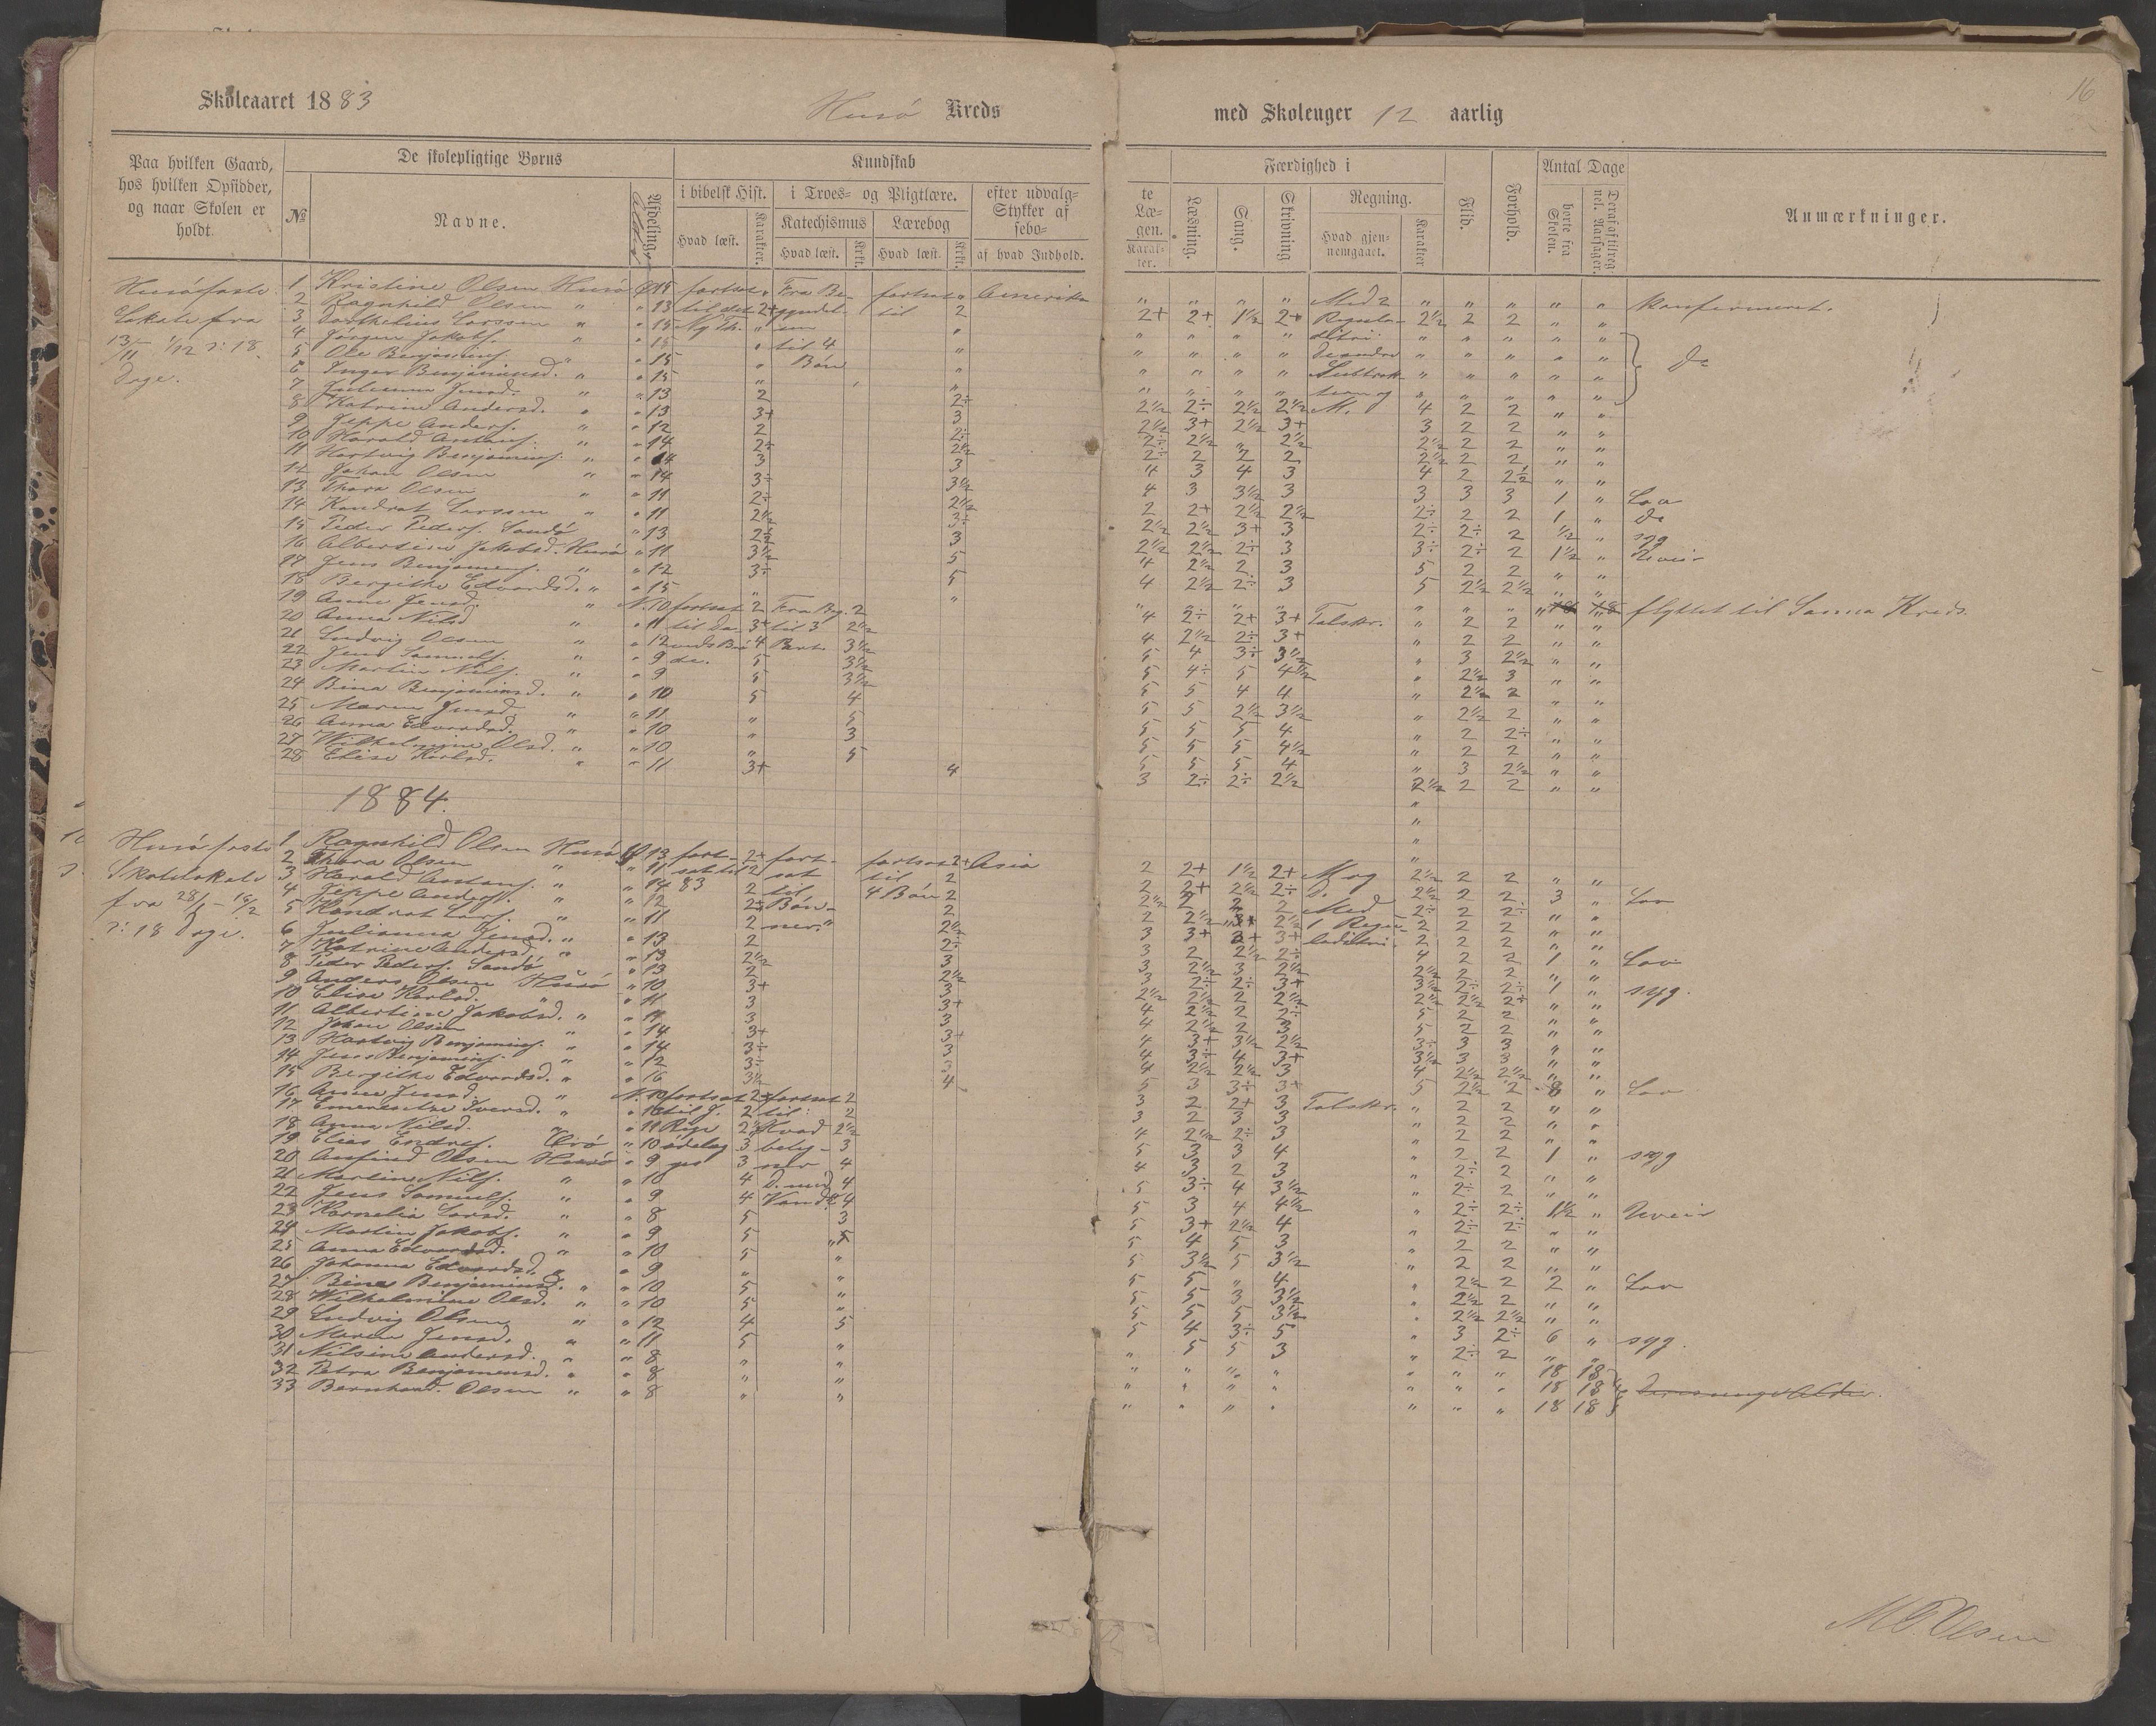 16
Skoleaaret 1883 Husø Kreds med Skoleuger 12 aarlig
Paa hvilken Gaard, hos hvilken Opsidder, og naar Skolen er holdt.
De skolepligtige Børns
№ Navne. Afdeling. Alder.
Kundskab
i bibelsk Hist. Hvad læst. Karakter.
i Troes- og Pligtlære.
Katechismus Hvad læst. Krkt.
Lærebog Hvad læst. Krkt.
efter udvalg- Stykker af sebo- af hvad Indhold.
te Læ- gen. Karak- ter.
Færdighed i
Læsning. Sang. Skrivning
Regning. Hvad gjen- nemgaaet. Karakter
Flid. Forhold.
Antal Dage
borte fra Skolen. Deraf aftilreg- nel. Aarsager.
Anmærkninger.
Husø faste
Lokale fra
13/11 1/12 ɔ: 18
Dage.
1 Kristine Olsen Husø 15 fortsat Fra Be- fortsat Amerika Med 2 Konfirmeret.
2 Ragnhild Olsen " " 13 til det 2+ til 2 2+ 2+ 1½ 2+ 2½ 2 2 " "
3 Larssen " " 15 " " " " "
4 Jørgen Jakobs. " " 15 " til 4 " " " " " do
5 Ole Benjamins. " " 15 " Bøn " " " " "
6 Inger Benjaminsd. " " 15 " " " " " "
7 Julianna Jensd. " " 13 2 2÷ 2½ 2÷ 2½ 2½ 4 2 2 " "
8 Katrine Andersd. " " 13 3+ 3 2½ 3+ 2½ 3+ 3 2 2 " "
9 Jeppe Anders. " " 12 2 2÷ 2÷ 2½ " 2½ 2½ 2 2 " "
10 Harald Antons. " " 14 2÷ 2½ 2÷ 2 2 2 2½ 2 2 " "
11 Hartvig Benjamins. " " 14 3 3 4 3 4 3 4 2 2½ " "
12 Johan Olsen " " 14 3÷ 3½ 4 3 3½ 3 3 3 3 1 " Lov
13 Thora Olsen " " 11 2÷ 2½ 2 2+ 2½ 2½ 2÷ 2 2 1 " do
14 Kondrat Larssen " " 11 2½ 3÷ 2½ 2½ 3+ 3 2÷ 2÷ 2 ½ " syg
15 Peder Peders. Sandø " 13 2½ 3 2½ 2½ 2÷ 3 3÷ 2÷ 2 1½ " Uveir
16 Albertine Jakobsd. Husø " 11 3½ 5 4 2½ 2 3 5 2 2 " "
17 Jens Benjamins. " " 12 3÷ 5 4 2½ 2÷ 3 5 2½ 2½ " "
18 Bergithe Edvardsd. " " 15 " " " " " " " " " 18 18 flyttet til Sanna Kreds.
19 Anne Jensd. " N. 10 fortsat 2 Fra Beg. 2 4 2÷ 2+ 3+ Talskr. " 2 2 " "
20 Anna Nilsd " " 11 3+ til 3 2½ 4 2½ 2÷ 3+ 2 2 " "
21 Ludvig Olsen " " 12 4 Part. 3½ 5 4 3÷ 3½ " 3 2½ " "
22 Jens Samuels. " " 9 do. 5 3½ 5 4÷ 5 4½ " 2½ 3 " "
23 Martin Nils. " " 9 5 3½ 5 5 4 4 " 2½ 2 " "
24 Bina Benjaminsd. " " 10 5 4 5 5 2½ 3½ " 2½ 2 " "
25 Maren Jensd " " 11 " 5 5 5 5 4 " 2 2÷ " "
26 Anna Edvardsd. " " 10 " 3 5 5 5 4½ " 2 2 " "
27 Wilhelmine Olsd. " " 10 " 5 5 5 5 4 " 3 2½ " "
28 Elise Karlsd. " " 11 3+ 4 3 2÷ 2÷ 2½ 2½ 2 2 " "
1884.
Husø faste
Skolelokale
fra 28/1 - 16/2
ɔ: 18 Dage.
1 Ragnhild Olsen Husø 13 fort- 2+ fort- fortsat 2+ Asia 2 2+ 1½ 2+ M og 2½ 2 2 " "
2 Thora Olsen " " 11 sat til 2 sat til 2 2 2+ 2½ 2÷ D. 2½ 2 2 3 " Lov
3 Harald Antons. " " 14 83 2 til 4 Bøn 2 2½ 2 2 2 Med 2÷ 2 2÷ " "
4 Jeppe Anders. " " 12 2÷ Bøn- 2 2 2½ 2½ 1 Regu- 2 2 2 " "
5 Kondrat Lars. " " 11 2 ner." 2½ 3 3+ 3+ 3+ ladetri. 2 2 2 " "
6 Julianna Jensd. " " 13 2 2÷ 3 2 2½ 2÷ 4 2 2 1 " Lov
7 Katrine Andersd. " " 13 2½ 3 3 2½ 3 2½ 2½ 2 2 " "
8 Peder Peders. Sandø " 13 2 2½ 3 2÷ 2÷ 3+ 3½ 2÷ 2÷ 1 " syg.
9 Anders Olsen Husø " 10 3+ 3 2½ 2½ 2 2½ 2½ 2½ 2+ " "
10 Elise Karlsd. " " 11 3 3+ 4 2½ 2 2÷ 5 2 2 " "
11 Albertine Jakobsd. " " 11 3 3 4 2½ 2 3 5 2 2 " "
12 Johan Olsen " " 14 3+ 3+ 4 3+ 3½ 2½ 3÷ 3 3 " "
13 Hartvig Benjamins. " " 14 3÷ 3 4 3÷ 4 3+ 3½ 3 3 " "
14 Jens Benjamins. " " 12 3÷ 3 4 2½ 2½ 3 4 2½ 2½ " "
15 Bergithe Edvardsd. " " 16 3½ 4 5 3 3÷ 3+ 5 2½ 2 8 " Lov
16 Anne Jensd. " N. 10 fortsat 2+ fortsat 2 3 2 2+ 3 Talskr. " 2 2 " "
17 Emerentze Iversd. " " 12 til J. 2 til 2 3 2 3 3 2 2 " "
18 Anna Nilsd. " " 11 Rige 2½ Hvad 2½ 4 2½ 2÷ 3 2 2 " "
19 Elias Endres. " 10 ødelag 3 bety- 3 5 3 3 4 " 2 2 1 " syg
20 Anfind Olsen Husø " 9 ges 3 der 4 4 3 2 3 " 2÷ 2 " "
21 Martin Nils. " " 10 4 D. med 4 5 3÷ 4 3½ " 2÷ 2 " "
22 Jens Samuels. " " 9 4 Vand? 4 5 3 4 4½ " 2÷ 2÷ 1½ " Uveir
23 Kornelia Larsd. " " 8 5 3 5 3+ 2½ 4 " 2÷ 2÷ " "
24 Martin Jakobs. " " 9 5 5 5 4 5 3 " 2 2 " "
25 Anna Edvardsd. " " 10 5 " 5 3½ 5 3½ " 2 2 " "
26 Johanna Edvardsd. " " 9 " " 5 5 " 4 " 2½ 2 2 " Lov
27 Bina Benjaminsd. " " 10 5 " 5 5 3 3½ " 2½ 2 " "
28 Wilhelmine Olsd. " " 10 5 " 5 5 5 3½ " 2½ 2½ " "
29 Ludvig Olsen " " 12 4 5 5 4 3÷ 5 " 3 2÷ 6 " syg.
30 Maren Jensd. " " 11 5 " " 5 5 3 " 2÷ 2 " "
31 Nilsine Andersd. " " 8 " " " " " " " " " 18 18
32 Petra Benjaminsd. " " 8 " " " " " " " " " 18 18
33 Bernhard Olsen " " 8 " " " " " " " " " 18 18
M O Olsen